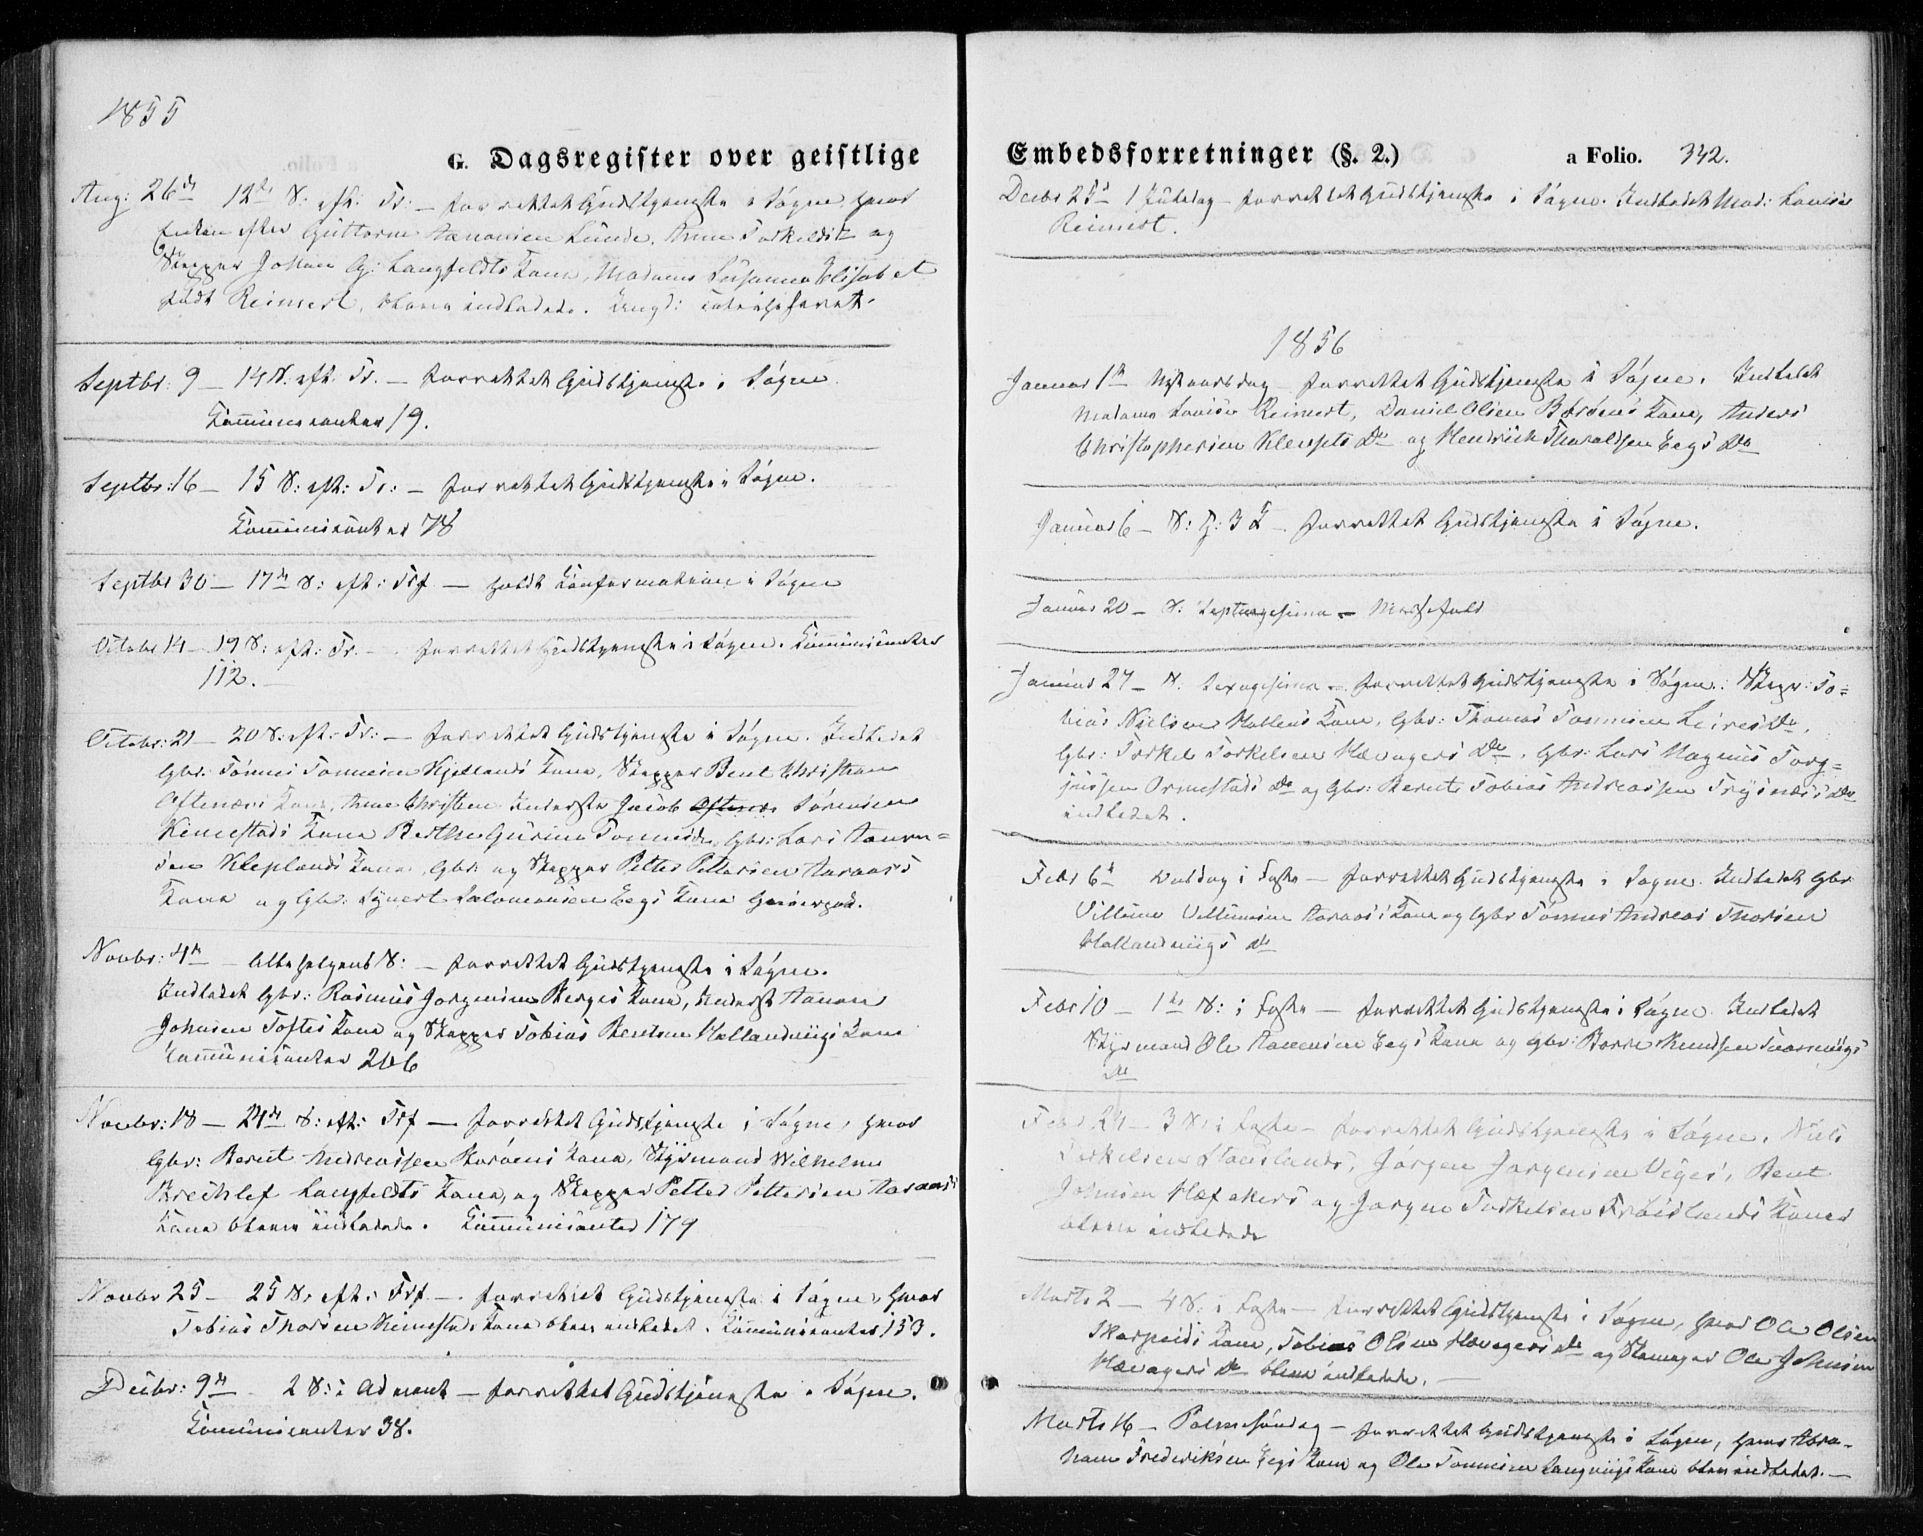 1855
G. Dagsregister over geistlige
Aug: 26de 12te S: eft: Tr: — forrettet Gudstjeneste i Søgne, hvor
Enken efter Guttorm Aanonsen Lunde, Anne Torkeldsdtr og
Skipper Johan Langfeldts Kone, Madame Susanna Elisabet
født Reimert, bleve indledede. Ungd: catechiseret.
Septbr: 9 — 14 S: eft: Tr. — forrettet Gudstjeneste i Søgne
Communicanter 19.
Septbr: 16 — 15 S: eft: Tr: — forrettet Gudstjeneste i Søgne.
Communicanter 78
Septbr 30 — 17de S: eft: Trf — holdt Confirmation i Søgne
Octobr 14 — 19 S: eft: Tr. — forrettet Gudstjeneste i Søgne. Communicanter
112.
Octobr: 21 — 20 S: eft: Tr: — forrettet Gudstjeneste i Søgne. Indledet
Gbr: Tønnes Tønnesen Kjellands Kone, Skipper Bent Christian
Kone, Anne Christine Inderste Jacob Sørensen
Kimestads Kone Berthe Gurine Tønnesdtr, Gbr: Lars Aanen=
sen Kleplands Kone, Gbr: og Skipper Petter Pettersen Aaraas's
Kone og Gbr: Syvert Salomonsen Eegs Kone
Novbr: 4de — Alle Helgens S: — forrettet Gudstjeneste i Søgne.
Indledet Gbr: Rasmus Jørgensen Berges Kone, Inderst Aanon
Johnsen Toftes Kone og Skipper Tobias Bentsen Høllandsviigs Kone
Communicanter 206
Novbr: 18 — 24de S: eft: Trf — forrettet Gudstjeneste i Søgne, hvor
Gbr: Berent Andreassen Borøens Kone, Styrmand Wilhelm
Langfeldts Kone, og Skipper Petter Pettersen Aaraas's
Kone bleve indledede. Communicanter 179
Novbr 25 — 25 S: eft: Trf — forrettet Gudstjeneste i Søgne, hvor
Tobias Thorsen Kimestads Kone blev indledet. Communicanter 153.
Decbr: 9de — 2 S: i Advent — forrettet Gudstjeneste i Søgne.
Communicanter 38.
Embedsforretninger (§. 2.) a Folio. 342.
Decbr 25de 1 Juledag — forrettet Gudstjeneste i Søgne. Indledet Mad: Lovise
Reimert.
1856
Januar 1ste Nytaarsdag — forrettet Gudstjeneste i Søgne. Indledet
Madame Lovise Reimert, Daniel Olsen Borøens Kone, Anders
Christophersen Do og Hendrich Tharaldsen Eegs Do
Januar 6 — S: H: 3 K — forrettet Gudstjeneste i Søgne.
Januar 20 — S: Septuagesima — Messefald
Januar 27 — S. Sexagesima — forrettet Gudstjeneste i Søgne: Skipr: To=
bias Nielsen Kone, Gbr: Thomas Tønnesen Leires Do,
Gbr: Torkel Torkelsen Høvaagers Do, Gbr: Lars Magnus Torg=
jussen Ormestads Do og Gbr: Berent Tobias Andreassen Trysnæs's Do
indledet.
Febr 6te Onsdag i Faste — forrettet Gudstjeneste i Søgne. Indledet Gbr
Villum Villumsen Aaraas's Kone og Gbr Tønnes Andreas Thorsen
Høllandsviigs Do
Febr 10 — 1ste S: i Faste — forrettet Gudstjeneste i Søgne. Indledet
Styrmand Ole Aanensen Eegs Kone og Gbr: Børre Knudsen Do
Febr 24 — 3 S: i Faste — forrettet Gudstjeneste i Søgne. Niels
Torkelsen Stauslands, Jørgen Jørgensen Viges, Bent
Johnsen og Jørgen Torkelsen Frøislands Koner
bleve indledede
Marts 2 — 4 S: i Faste — forrettet Gudstjeneste i Søgne, hvor Ole Olsen
Skarpeids Kone, Tobias Olsen Høvaagers Do og Ole Johnsen
Høvaagers Do bleve indledede. —
Marts 16 — Palmesøndag — forrettet Gudstjeneste i Søgne, hvor Abra-
ham Frederiksen Eegs Kone og Ole Tønnesen Langviigs Kone blev indledet. —